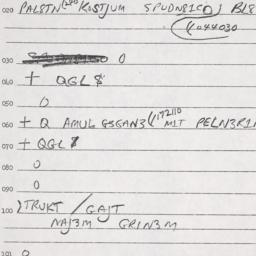 020 PALSTN KOSTJUM SPUDN81CD) BL8
4044030
030 0
040 + QGL 8
050 0
060 + Q AMUL GSGAN3 4172110 MIT PELN3R1
070 + QGL
080 0
090 0
100 TRUKT / GAJT
NAJ3M GRIN3M
101 0